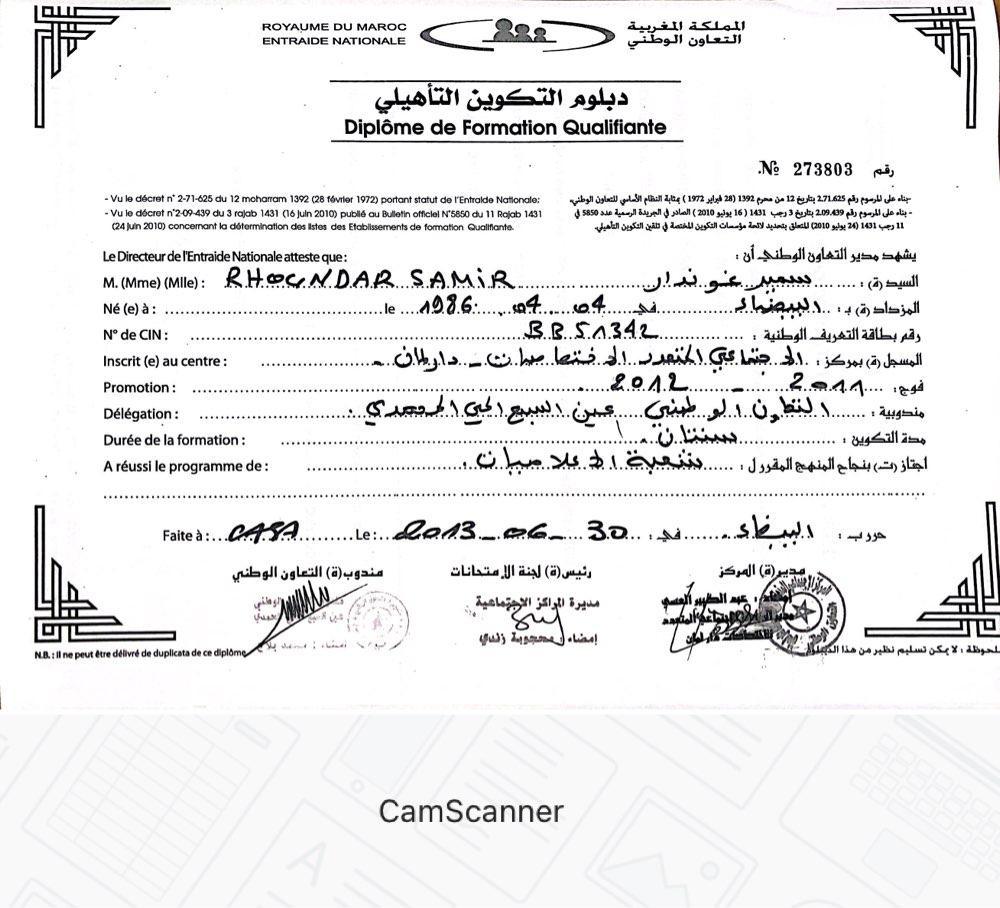 ROYAUME DU MAROC
ENTRAIDE NATIONALE
المملكة المغربية
التعاون الوطني
دبلوم التكوين التأهيلي
Diplôme de Formation Qualifiante
رقم 273803 №.
- Vu le décret n° 2-71-625 du 12 moharram 1392 (28 février 1972) portant statut de l'Entraide Nationale;
- Vu le décret n°2-09-439 du 3 rajab 1431 (16 juin 2010) publié au Bulletin officiel N°5850 du 11 Rajab 1431
(24 juin 2010) concernant la détermination des listes des Etablissements de formation Qualifiante.
-بناء على المرسوم رقم 2.71.625 بتاريخ 12 من محرم 1392 (28 فبراير 1972 ) بمثابة النظام الأساسي للتعاون الوطني.
- بناء على المرسوم رقم 2.09.439 بتاريخ 3 رجب 1431 ( 16 يونيو 2010 ) الصادر في الجريدة الرسمية عدد 5850 في
11 رجب 1431 (24 يونيو 2010) المتعلق بتحديد لائحة مؤسسات التكوين المختصة في تلقين التكوين التأهيلي.
Le Directeur de l'Entraide Nationale atteste que :
يشهد مدير التعاون الوطني أن :
M. (Mme) (Mlle) : RHOUNDAR SAMIR
السيد(ة) : سمير غوندار
Né (e) à : le 1986 04 04
المزداد(ة) بـ : البيضاء في
N° de CIN : BB51342
رقم بطاقة التعريف الوطنية :
Inscrit (e) au centre :
المسجل(ة) بمركز : الاجتماعي المتعدد الاختصاصات - دار لمان
Promotion : 2012 - 2011
فوج :
Délégation :
مندوبية : التعاون الوطني عين السبع الحي المحمدي
Durée de la formation :
مدة التكوين : سنتان
A réussi le programme de :
اجتاز(ت) بنجاح المنهج المقرر لـ : شعبة الاعلاميات
Faite à : CASA Le : 2013-06-30
حرر بـ : البيضاء في :
مدير(ة) المركز
رئيس(ة) لجنة الإمتحانات
مندوب(ة) التعاون الوطني
مديرة المراكز الاجتماعية
إمضاء : محجوبة زندي
N.B. : Il ne peut être délivré de duplicata de ce diplôme
ملحوظة : لا يمكن تسليم نظير من هذا الدبلوم
CamScanner